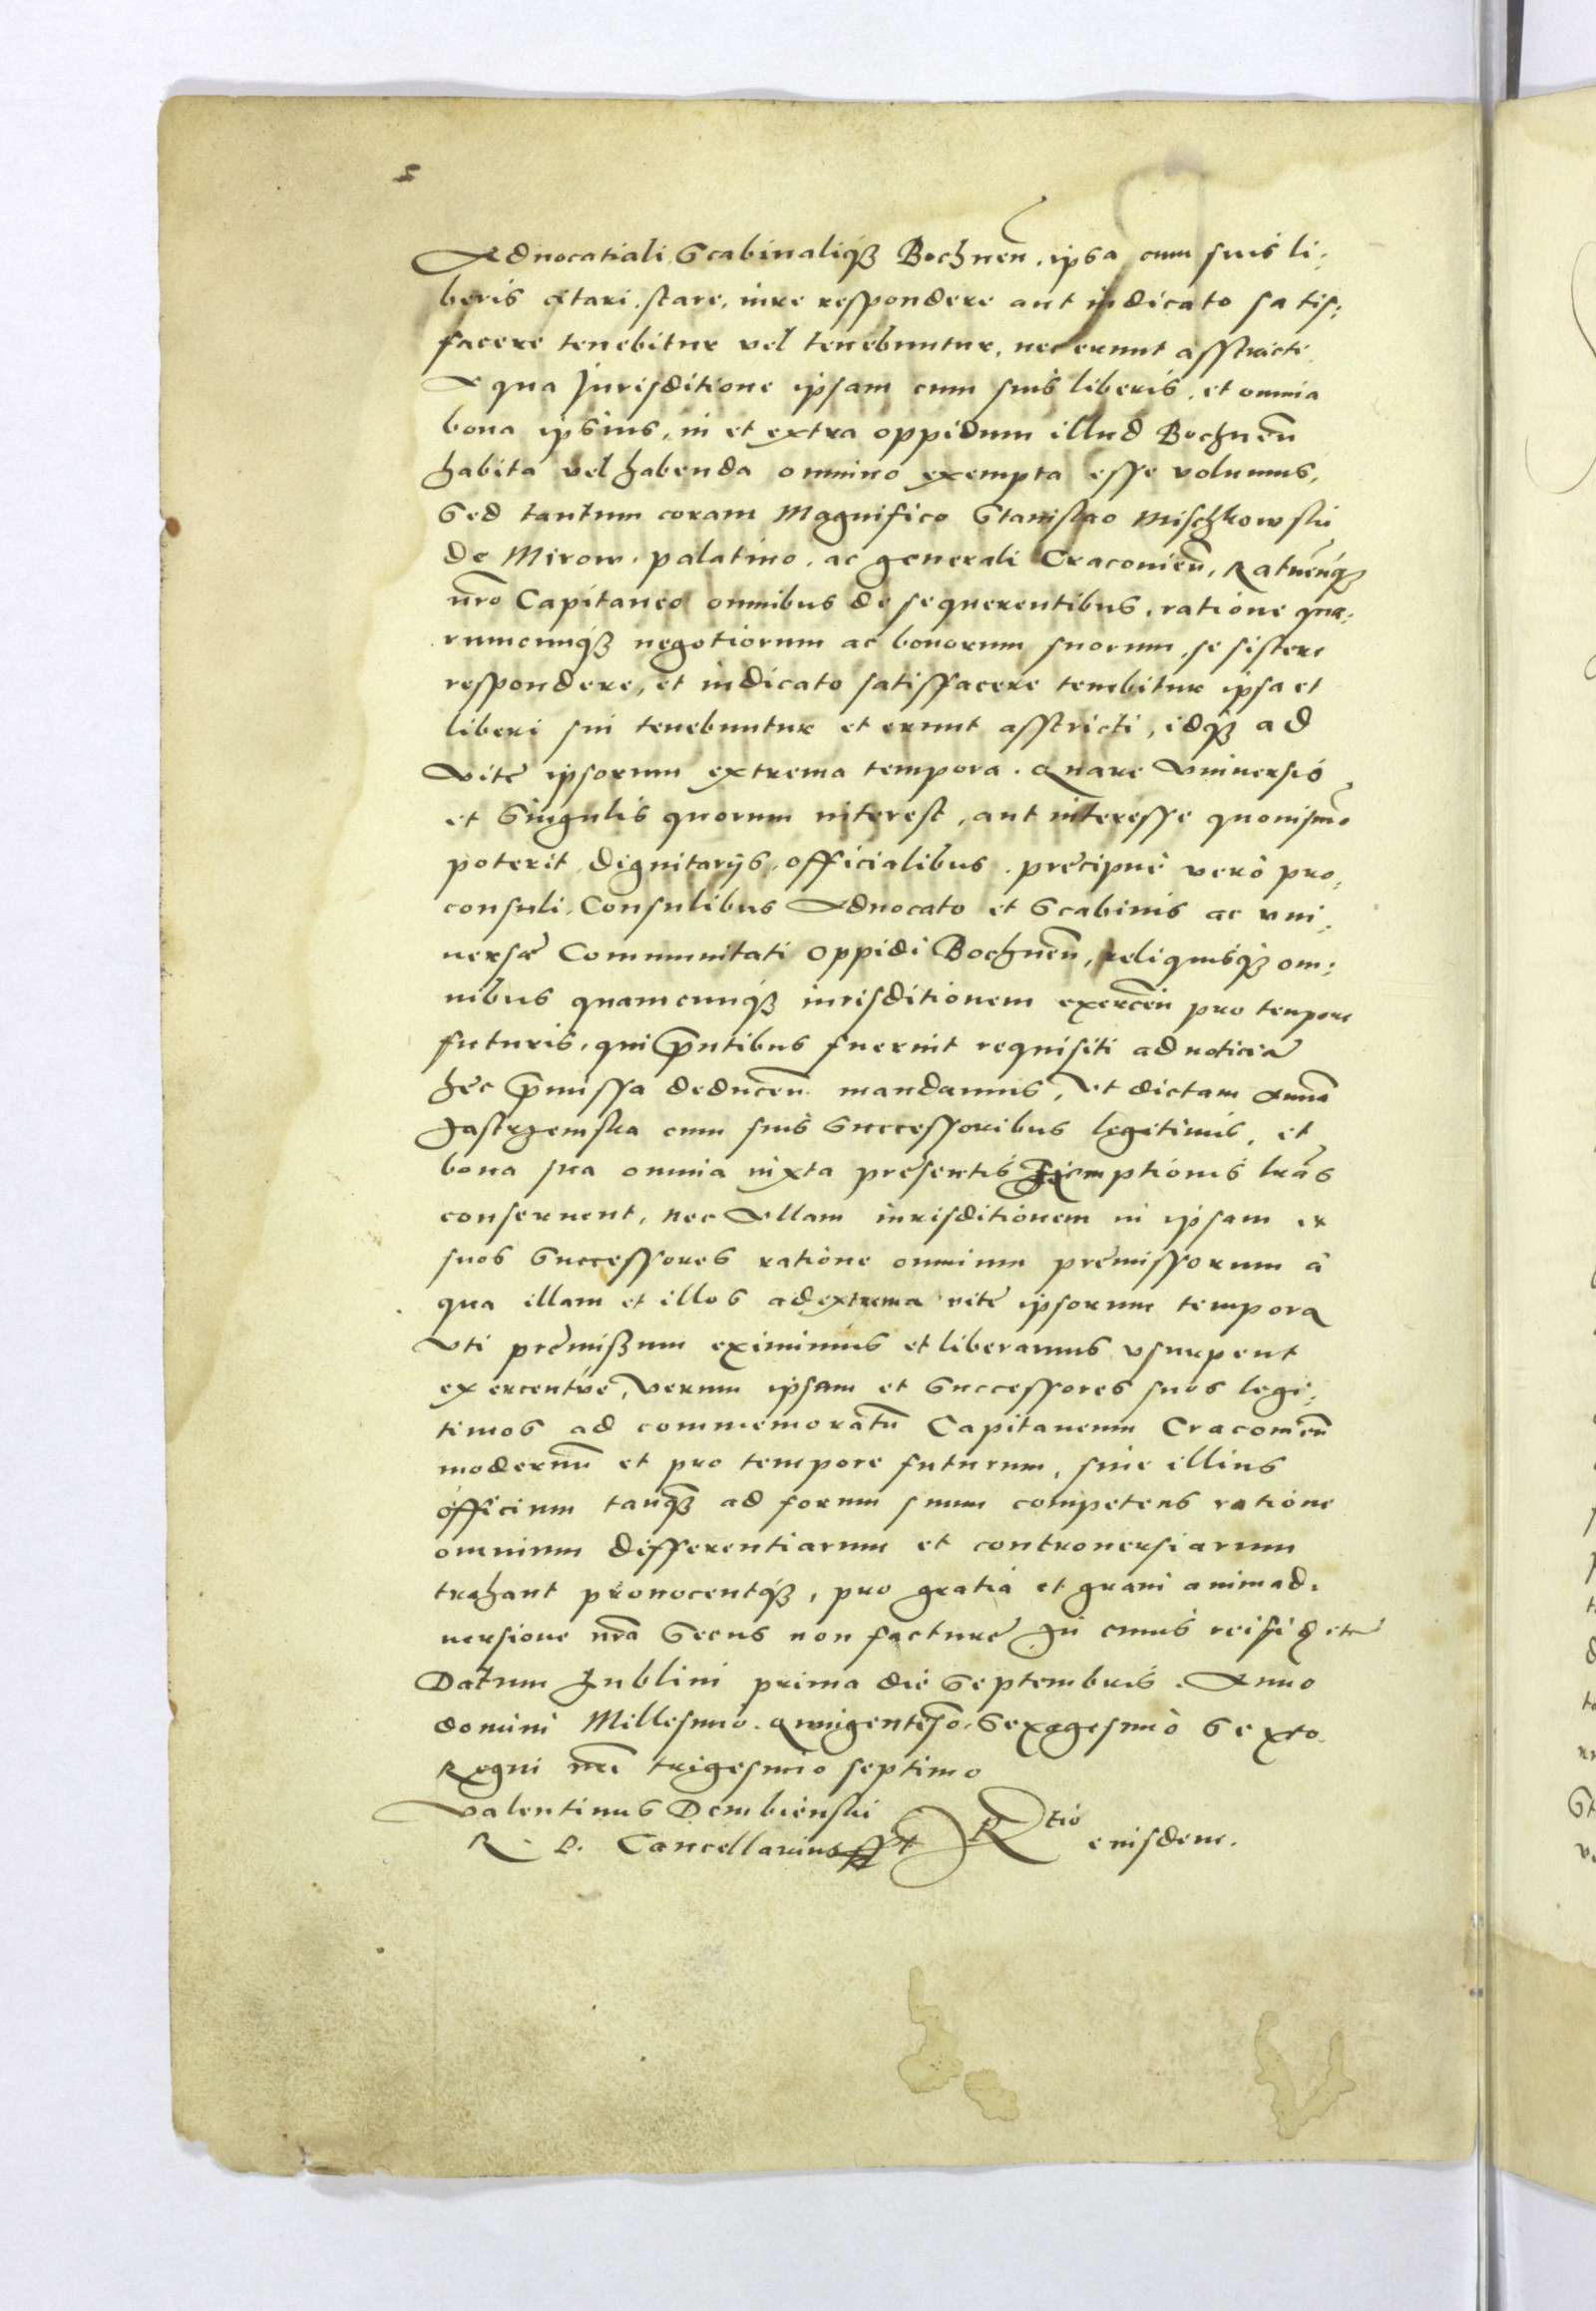 Aduocatiali Scabinaliqꝫ Bochneñ. ipsa cum suis li:
beris citari. stare. iure respondere aut iudicato satis:
facere tenebitur vel tenebuntur, nec erunt asstricti
A qua Jurisditione ipsam cum suis liberis, et omnia
bona ipsius, in et extra oppidum illud Bochneñ
habita vel habenda omnino exempta esse volumus,
Sed tantum coram Magnifico Stanislao Mischkowski
de Mirow. palatino. ac generali Cracovieñ, Ratneñqꝫ
nr̃o Capitaneo omnibus de se querentibus, ratione qua:
rumcunqꝫ negotiorum ac bonorum suorum, se sistere
respondere, et iudicato satisfacere tenebitur ipsa et
liberi sui tenebuntur et erunt asstricti, idqꝫ ad
Vitę ipsorum extrema tempora. Quare Vniuersis
et Singulis quorum interest, aut interesse quouismõ
poterit, dignitarijs, officialibus. pręcipuè verò pro,
consuli. Consulibus Aduocato et Scabinis ac vni:
uersæ Communitati oppidi Bochneñ, reliquisqꝫ om:
nibus quamcunqꝫ iurisditionem exerceñ pro tempore
futuris, qui p̃ntibus fuerint requisiti ad noticiã
hęc p̃missa deduceñ. mandamus, Vt dictam Annã
Jastrzemska cum suis Successoribus legitimis, et
bona sua omnia iuxta pręsentis Exemptionis lr̃as
conseruent, nec Vllam iurisditionem in ipsam et
suos Successores ratione omnium pręmissorum à
qua illam et illos ad extrema vitę ipsorum tempora
Vti pręmissum eximimus et liberamus vsurpent
exerceantue, verum ipsam et Successores suos legi:
timos ad commemoratũ Capitaneum Cracovieñ
modernũ et pro tempore futurum, siue illius
officium tanqꝫ ad forum suum competens ratione
omnium differentiarum et controuersiarum
trahant prouocentqꝫ, pro gratia et graui animad:
uersione nr̃a Secus non facturę In cuius rei fid etc
Datum Lublini prima die Septembris. Anno
domini Millesimo. Quingentesĩo, Sexagesimò Sexto.
Regni nr̃i trigesimo septimo
Valentinus Dembienski
R. P. Cancellarius sst Rtio eiusdem.